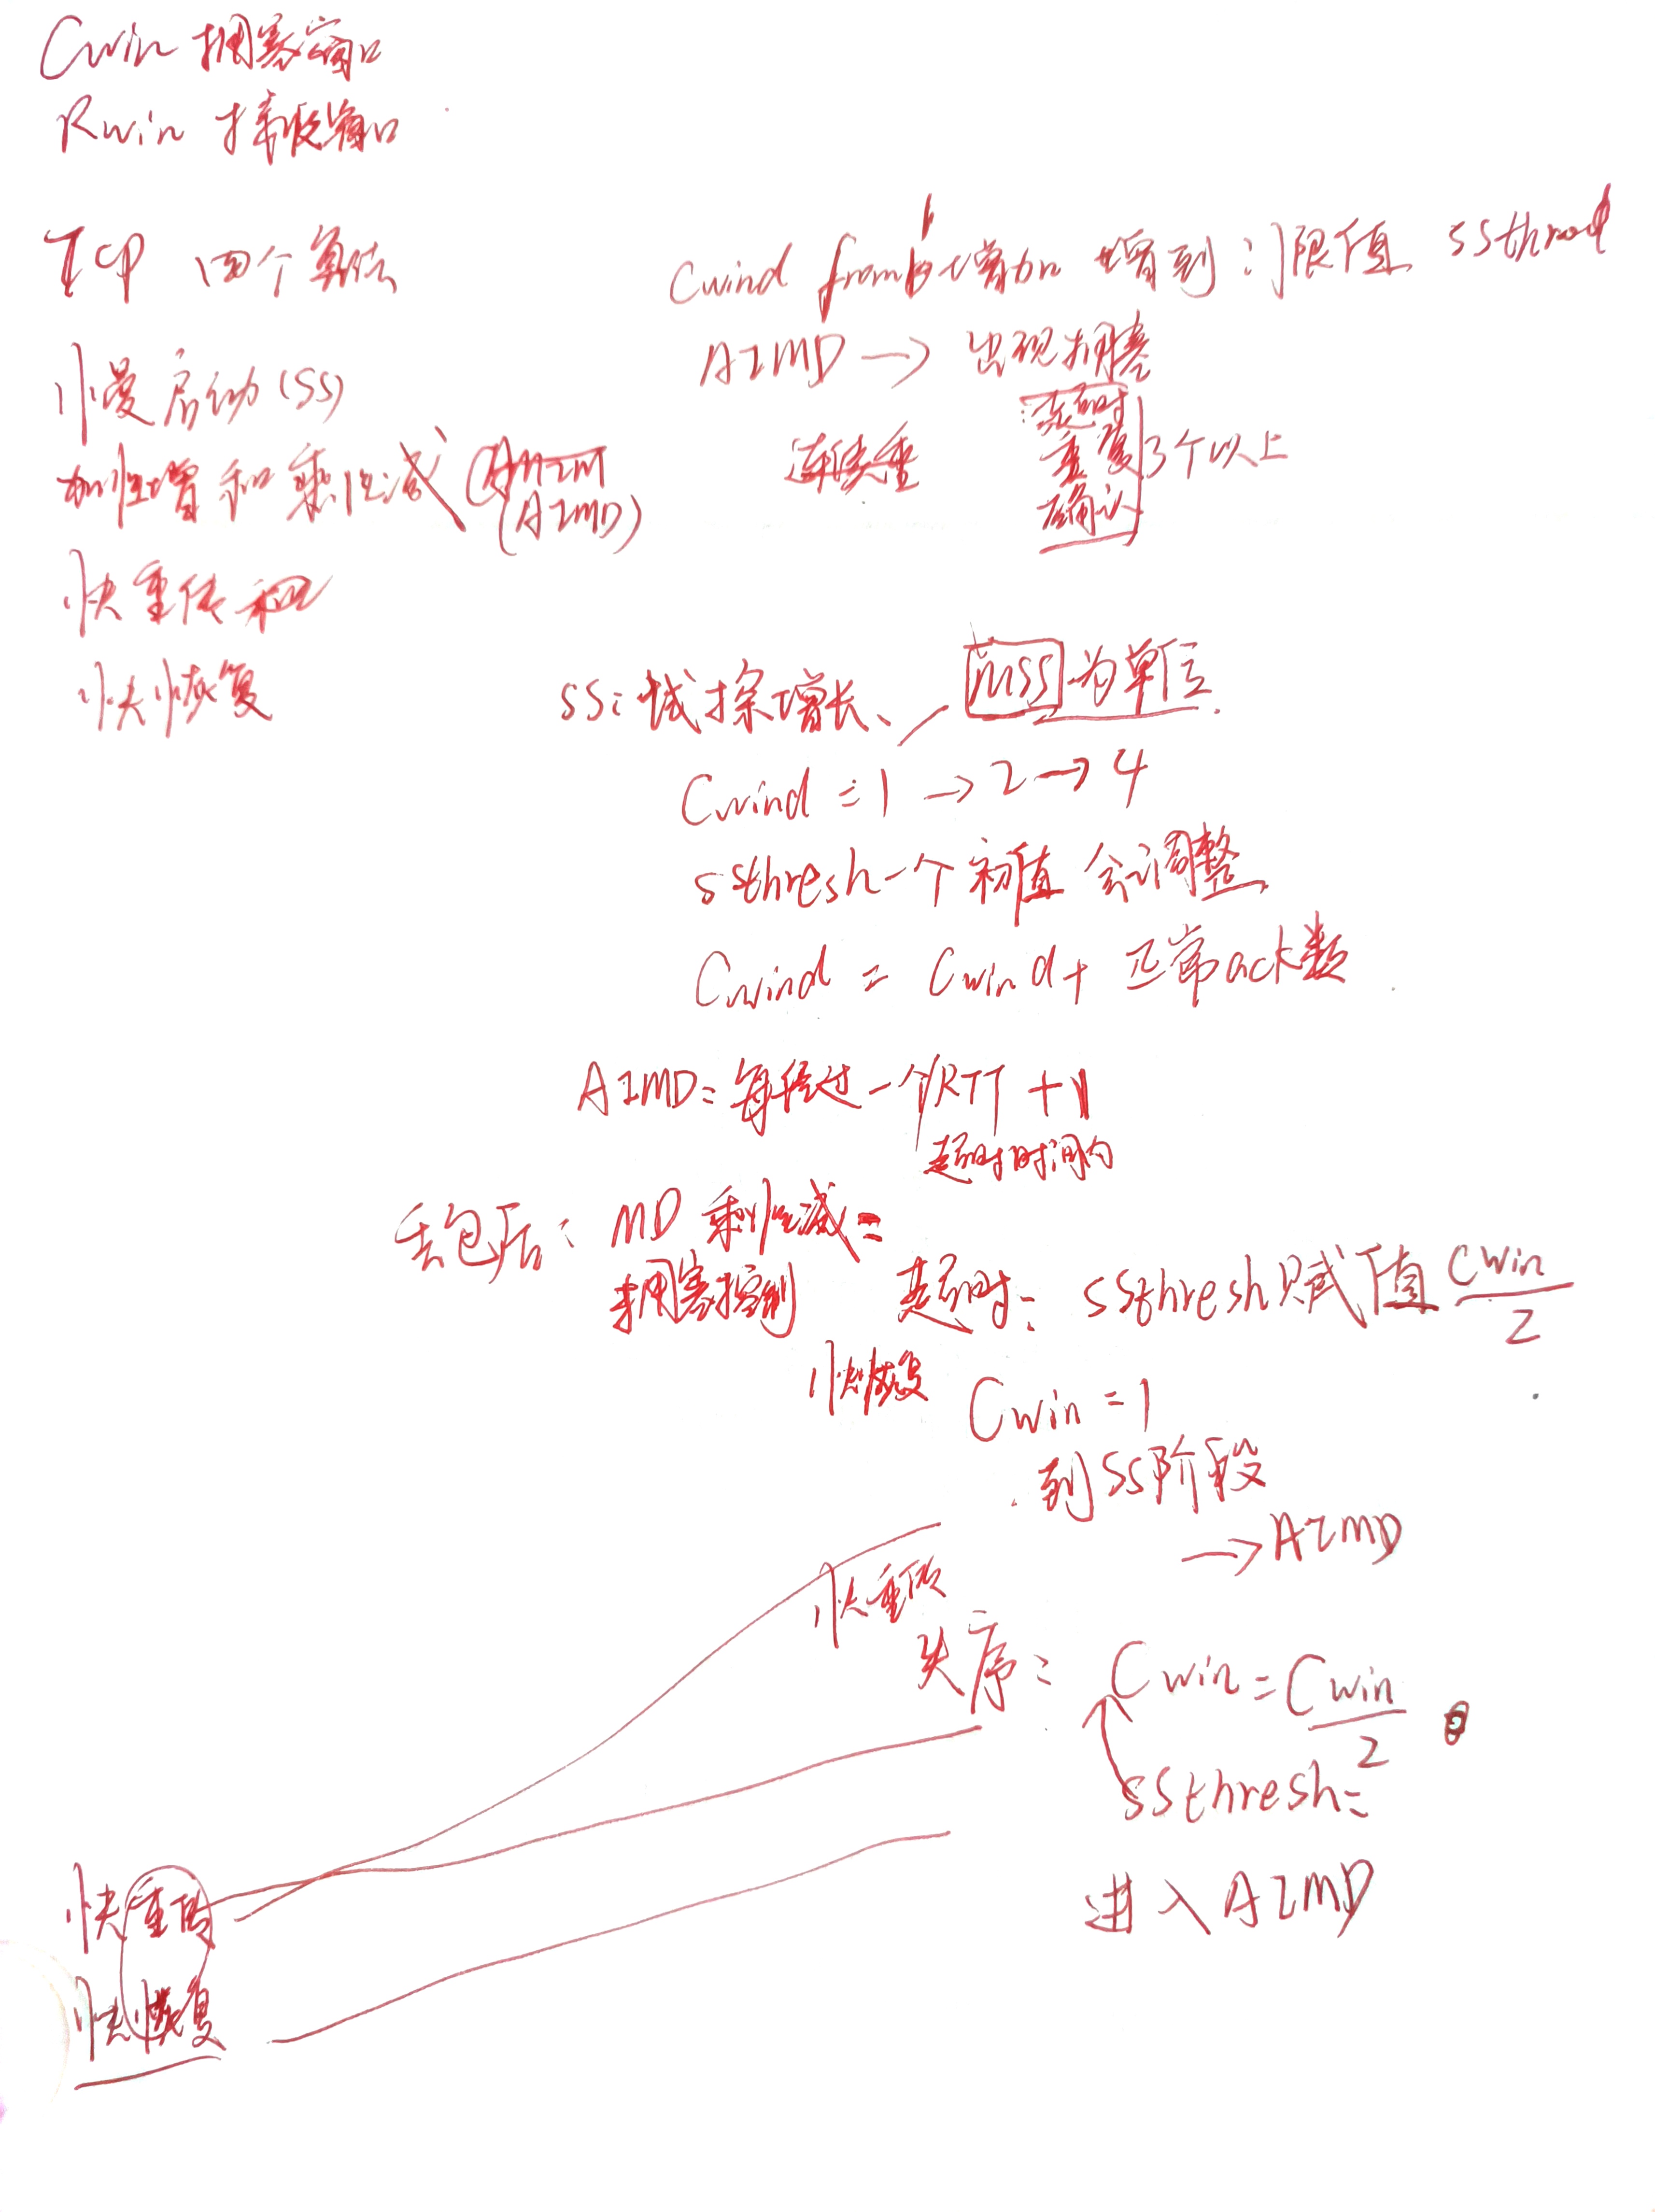 Cwin 拥塞窗口
Rwin 接收窗口
TCP 四个算法
慢启动(SS)
加性增和乘性减
(AIMD)
快重传和
快恢复
Cwind from 1 增加 增到门限值 ssthred
AIMD → 出现拥塞
超时
连续重 重复 3个以上
确认
SS: 试探增长、 MSS 为单位
Cwind = 1 → 2 → 4
ssthresh一个初值 会调整
Cwind = Cwind + 正常ack数
AIMD: 每经过一个RTT +1
超时时间内
丢包后: MD 乘性减:
拥塞控制 超时: ssthresh赋值 Cwin/2
快恢复 Cwin = 1
到SS阶段
→ AIMD
快重传
失序: Cwin = Cwin/2
ssthresh=
进入 AIMD
快重传
快恢复